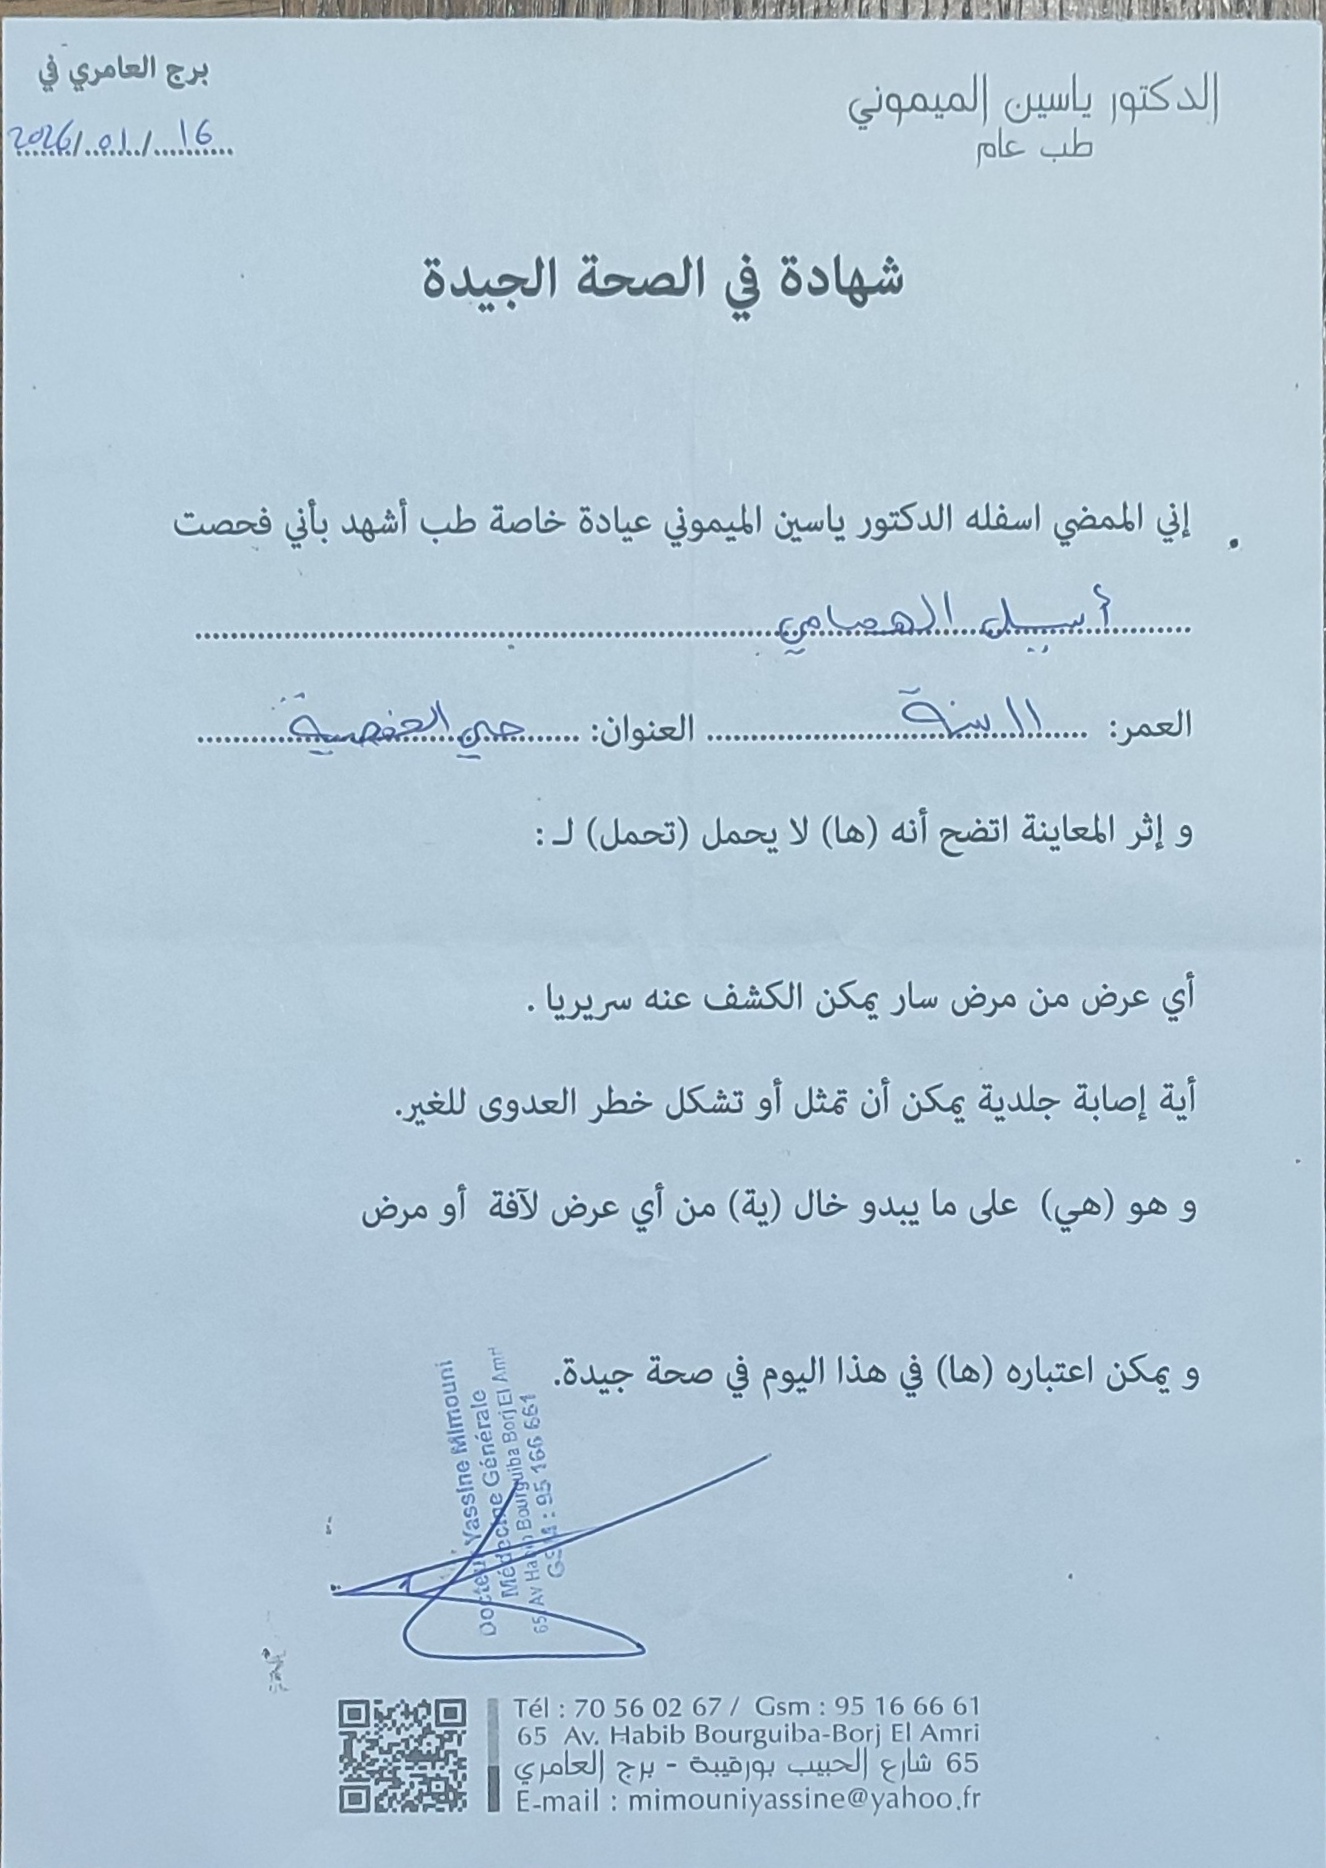 الدكتور ياسين الميموني
طب عام
برج العامري في
16/01/2026
شهادة في الصحة الجيدة
إني الممضي اسفله الدكتور ياسين الميموني عيادة خاصة طب أشهد بأني فحصت
أسيل الهصامي
العمر: 11 سنة العنوان: حي الحفصية
و إثر المعاينة اتضح أنه (ها) لا يحمل (تحمل) لـ :
أي عرض من مرض سار يمكن الكشف عنه سريريا .
أية إصابة جلدية يمكن أن تمثل أو تشكل خطر العدوى للغير.
و هو (هي) على ما يبدو خال (ية) من أي عرض لآفة أو مرض
و يمكن اعتباره (ها) في هذا اليوم في صحة جيدة.
Docteur Yassine Mimouni
Médecine Générale
65, Av Habib Bourguiba Borj El Amri
GSM : 95 166 661
Tél : 70 56 02 67 / Gsm : 95 16 66 61
65 Av. Habib Bourguiba-Borj El Amri
65 شارع الحبيب بورقيبة - برج العامري
E-mail : mimouniyassine@yahoo.fr